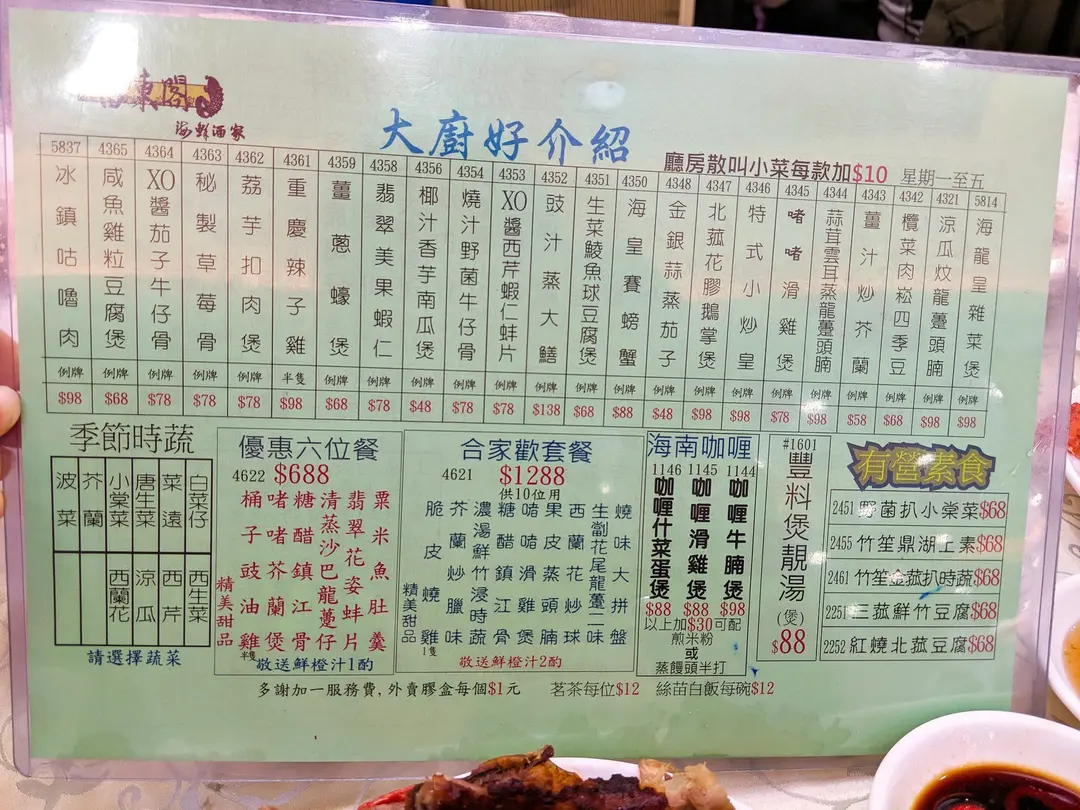 東閣
海鮮酒家
大廚好介紹
廳房散叫小菜每款加$10 星期一至五
5837 冰鎮咕嚕肉 例牌 $98
4365 咸魚雞粒豆腐煲 例牌 $68
4364 XO醬茄子牛仔骨 例牌 $78
4363 秘製草莓骨 例牌 $78
4362 荔芋扣肉煲 例牌 $78
4361 重慶辣子雞 半隻 $98
4359 薑蔥蠔煲 例牌 $68
4358 翡翠美果蝦仁 例牌 $78
4356 椰汁香芋南瓜煲 例牌 $48
4354 燒汁野菌牛仔骨 例牌 $78
4353 XO醬西芹蝦仁蚌片 例牌 $78
4352 豉汁蒸大鱔 例牌 $138
4351 生菜鯪魚球豆腐煲 例牌 $68
4350 海皇賽螃蟹 例牌 $88
4348 金銀蒜蒸茄子 例牌 $48
4347 北菰花膠鵝掌煲 例牌 $98
4346 特式小炒皇 例牌 $98
4345 啫啫滑雞煲 例牌 $78
4344 蒜茸雲耳蒸龍躉頭腩 例牌 $98
4343 薑汁炒芥蘭 例牌 $58
4342 欖菜肉崧四季豆 例牌 $68
4321 涼瓜炆龍躉頭腩 例牌 $98
5814 海龍皇雜菜煲 例牌 $98
季節時蔬
菠菜
芥蘭
小棠菜
唐生菜
菜遠
白菜仔
西蘭花
涼瓜
西芹
西生菜
請選擇蔬菜
優惠六位餐
4622 $688
粟米魚肚羹
翡翠花姿蚌片
清蒸沙巴龍躉仔
糖醋鎮江骨
啫啫芥蘭煲
桶子豉油雞 半隻
精美甜品
敬送鮮橙汁1酌
合家歡套餐
4621 $1288
供10位用
燒味大拼盤
生劏花尾龍躉二味
西蘭花炒球
果皮蒸頭腩
啫啫滑雞煲
糖醋鎮江骨
濃湯鮮竹浸時蔬
芥蘭炒臘味
脆皮燒雞 1隻
精美甜品
敬送鮮橙汁2酌
海南咖喱
1146 咖喱什菜蛋煲 $88
1145 咖喱滑雞煲 $88
1144 咖喱牛腩煲 $98
以上加$30可配
煎米粉
或
蒸饅頭半打
#1601
豐料煲靚湯
(煲)
$88
有營素食
2451 野菌扒小棠菜$68
2455 竹笙鼎湖上素$68
2461 竹笙金菰扒時蔬$68
2251 三菰鮮竹豆腐$68
2252 紅燒北菰豆腐$68
多謝加一服務費,外賣膠盒每個$1元 茗茶每位$12 絲苗白飯每碗$12